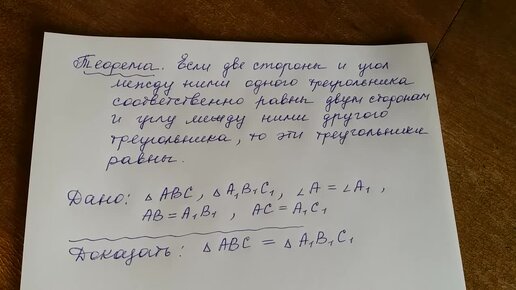 Теорема. Если две стороны и угол
между ними одного треугольника
соответственно равны двум сторонам
и углу между ними другого
треугольника, то эти треугольники
равны.
Дано: △ ABC, △ A₁B₁C₁, ∠A = ∠A₁,
AB = A₁B₁, AC = A₁C₁
Доказать: △ ABC = △ A₁B₁C₁